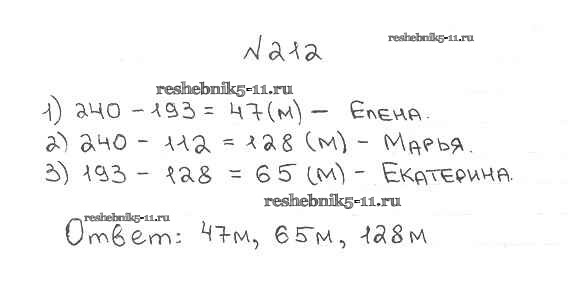 №212
reshebnik5-11.ru
reshebnik5-11.ru
1) 240 - 193 = 47 (м) - Елена.
2) 240 - 112 = 128 (м) - Марья.
3) 193 - 128 = 65 (м) - Екатерина.
reshebnik5-11.ru
reshebnik5-11.ru
Ответ: 47м, 65м, 128м